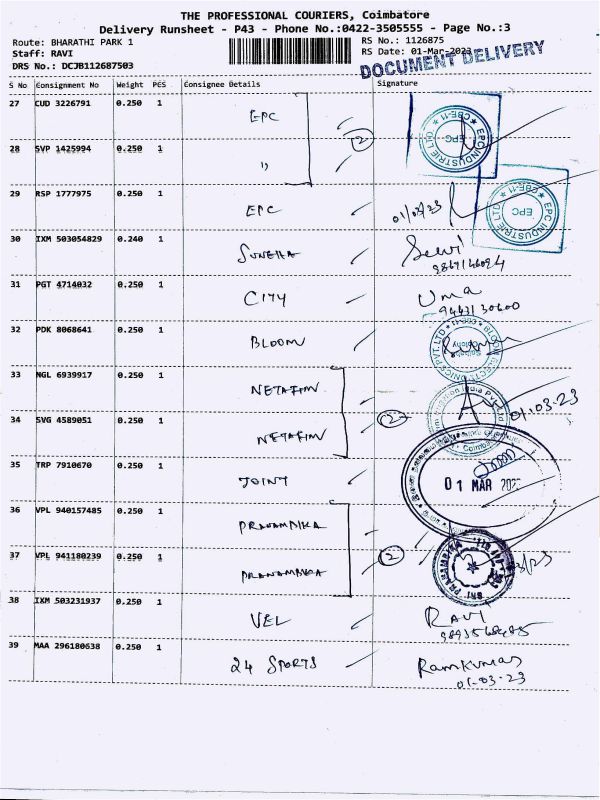 THE PROFESSIONAL COURIERS, Coimbatore
Delivery Runsheet - P43 - Phone No.:0422-3505555 - Page No.:3
Route: BHARATHI PARK 1 RS No.: 1126875
Staff: RAVI RS Date: 01-Mar-2023
DRS No.: DCJB112687503 DOCUMENT DELIVERY
S No Consignment No Weight PCS Consignee Details Signature
27 CUD 3226791 0.250 1 EPC
EPC INDUSTRIE LTD CBE-11 EPC
28 SVP 1425994 0.250 1 " 2
29 RSP 1777975 0.250 1 EPC 01/03/23
EPC INDUSTRIE LTD CBE-11 EPC
30 IXM 503054829 0.240 1 SUNEHA Selvi
31 PGT 4714032 0.250 1 CITY Uma
32 PDK 8068641 0.250 1 BLOOM
33 NGL 6939917 0.250 1 NETAFIM
34 SVG 4589051 0.250 1 NETAFIM 2 01.03.23
35 TRP 7910670 0.250 1 JOINT
01 MAR 2023
36 VPL 940157485 0.250 1 PRANAMBIKA
37 VPL 941180239 0.250 1 PRANAMBIKA 2
38 IXM 503231937 0.250 1 VEL RAVI
39 MAA 296180638 0.250 1 24 SPORTS Ramkumar
01-03-23